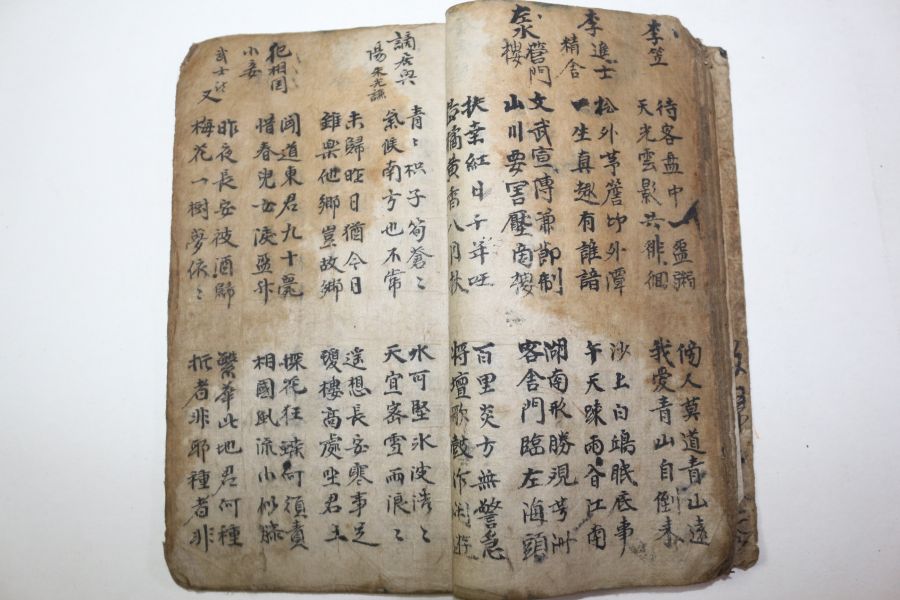 李笠
待客盘中一盃粥
天光雲影共徘徊
傍人莫道青山遠
我愛青山自倒来
李進士
精舍
松外茅簷竹外潭
一生真趣有誰諳
沙上白鷗眠底事
午天踈雨杳江南
左水
營門
樓
文武宣傳兼節制
山川要害壓南樓
湖南形勝現芳洲
客舍門臨左海頭
扶桒紅日千年旺
橘黄香八月秋
百里炎方無警急
将壇歌鼓作閑遊
謫居與
陽 朱光謙
青〻枳子筍蒼〻
氣候南方也不常
水可堅氷波濤〻
天宜密雪雨浪〻
未歸昨日猶今日
雖樂他鄉豈故鄉
遥想長安寒事足
瓊樓高處坐君王
犯相国
小妾
武士
聞道東君九十
惜春兒女淚盈升
探花狂蝶何須責
相國風流小似滕
又
昨夜長安被酒歸
梅花一樹夢依〻
繁華此地君何種
折者非耶種者非